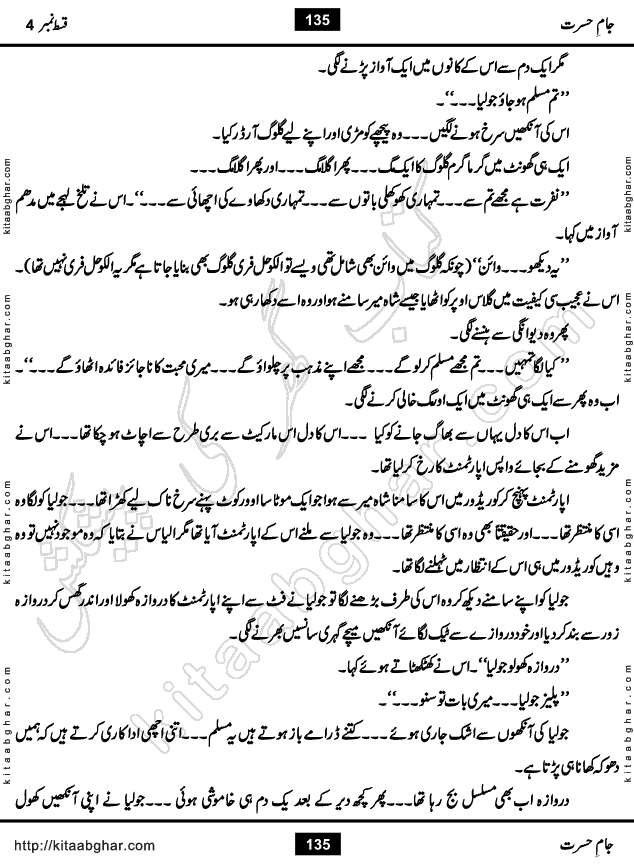 جام حسرت 135 قسط نمبر 4
مگر ایک دم سے اس کے کانوں میں ایک آواز پڑنے لگی۔
’’تم مسلم ہو جاؤ جولیا۔۔۔‘‘۔
اس کی آنکھیں سرخ ہونے لگیں۔۔۔وہ پیچھے کو مڑی اور اپنے لیے گلوگ آرڈر کیا۔
ایک ہی گھونٹ میں گرما گرم گلوگ کا ایک مگ۔۔۔پھر اگلا مگ۔۔۔اور پھر اگلا مگ۔۔۔
’’نفرت ہے مجھے تم سے۔۔۔تمہاری کھوکھلی باتوں سے۔۔۔تمہاری دکھاوے کی اچھائی سے۔۔۔‘‘۔اس نے تلخ لہجے میں مدھم
آواز میں کہا۔
’’یہ دیکھو۔۔۔وائن‘‘(چونکہ گلوگ میں وائن بھی شامل تھی ویسے تو الکوحل فری گلوگ بھی بنایا جاتا ہے مگر یہ الکوحل فری نہیں تھا)۔
اس نے عجیب سی کیفیت میں گلاس اوپر کو اٹھایا جیسے شاہ میر سامنے ہو اور وہ اسے دکھا رہی ہو۔
پھر وہ دیوانگی سے ہنسنے لگی۔
’’کیا لگا تمہیں۔۔۔تم مجھے مسلم کر لو گے۔۔۔مجھے اپنے مذہب پر چلواؤ گے۔۔۔میری محبت کا ناجائز فائدہ اٹھاؤ گے۔۔۔‘‘۔
اب وہ پھر سے ایک ہی گھونٹ میں ایک اور مگ خالی کرنے لگی۔
اب اس کا دل یہاں سے بھاگ جانے کو کیا ۔۔۔اس کا دل اس مارکیٹ سے بری طرح سے اچاٹ ہو چکا تھا۔۔۔اس نے
مزید گھومنے کے بجائے واپس اپارٹمنٹ کا رخ کر لیا تھا۔
اپارٹمنٹ پہنچ کر کوریڈور میں اس کا سامنا شاہ میر سے ہوا جو ایک موٹا سا اوور کوٹ پہنے سرخ ناک لیے کھڑا تھا۔۔۔جولیا کو لگا وہ
اسی کا منتظر تھا۔۔۔اور حقیقتاً بھی وہ اسی کا منتظر تھا۔۔۔وہ جولیا سے ملنے اس کے اپارٹمنٹ آیا تھا مگر الیاس نے بتایا کہ وہ موجود نہیں تو وہ
وہیں کوریڈور میں ہی اس کے انتظار میں ٹہلنے لگا تھا۔
جولیا کو اپنے سامنے دیکھ کر وہ اس کی طرف بڑھنے لگا تو جولیا نے فٹ سے اپنے اپارٹمنٹ کا دروازہ کھولا اور اندر گھس کر دروازہ
زور سے بند کر دیا اور خود دروازے سے ٹیک لگائے آنکھیں میچے گہری سانسیں بھرنے لگی۔
’’دروازہ کھولو جولیا‘‘۔اس نے کھٹکھٹاتے ہوئے کہا۔
’’پلیز جولیا۔۔۔میری بات تو سنو۔۔۔‘‘۔
جولیا کی آنکھوں سے اشک جاری ہوئے۔۔۔کتنے ڈرامے باز ہوتے ہیں یہ مسلم۔۔۔اتنی اچھی اداکاری کرتے ہیں کہ ہمیں
دھوکہ کھانا ہی پڑتا ہے۔
دروازہ اب بھی مسلسل بج رہا تھا۔۔۔پھر کچھ دیر کے بعد یک دم ہی خاموشی ہوئی ۔۔۔جولیا نے اپنی آنکھیں کھول
kitaabghar.com
kitaabghar.com
kitaabghar.com
kitaabghar.com
kitaabghar.com
kitaabghar.com
kitaabghar.com
kitaabghar.com
کتاب گھر کی پیشکش
kitaabghar.com
جام حسرت 135 http://kitaabghar.com